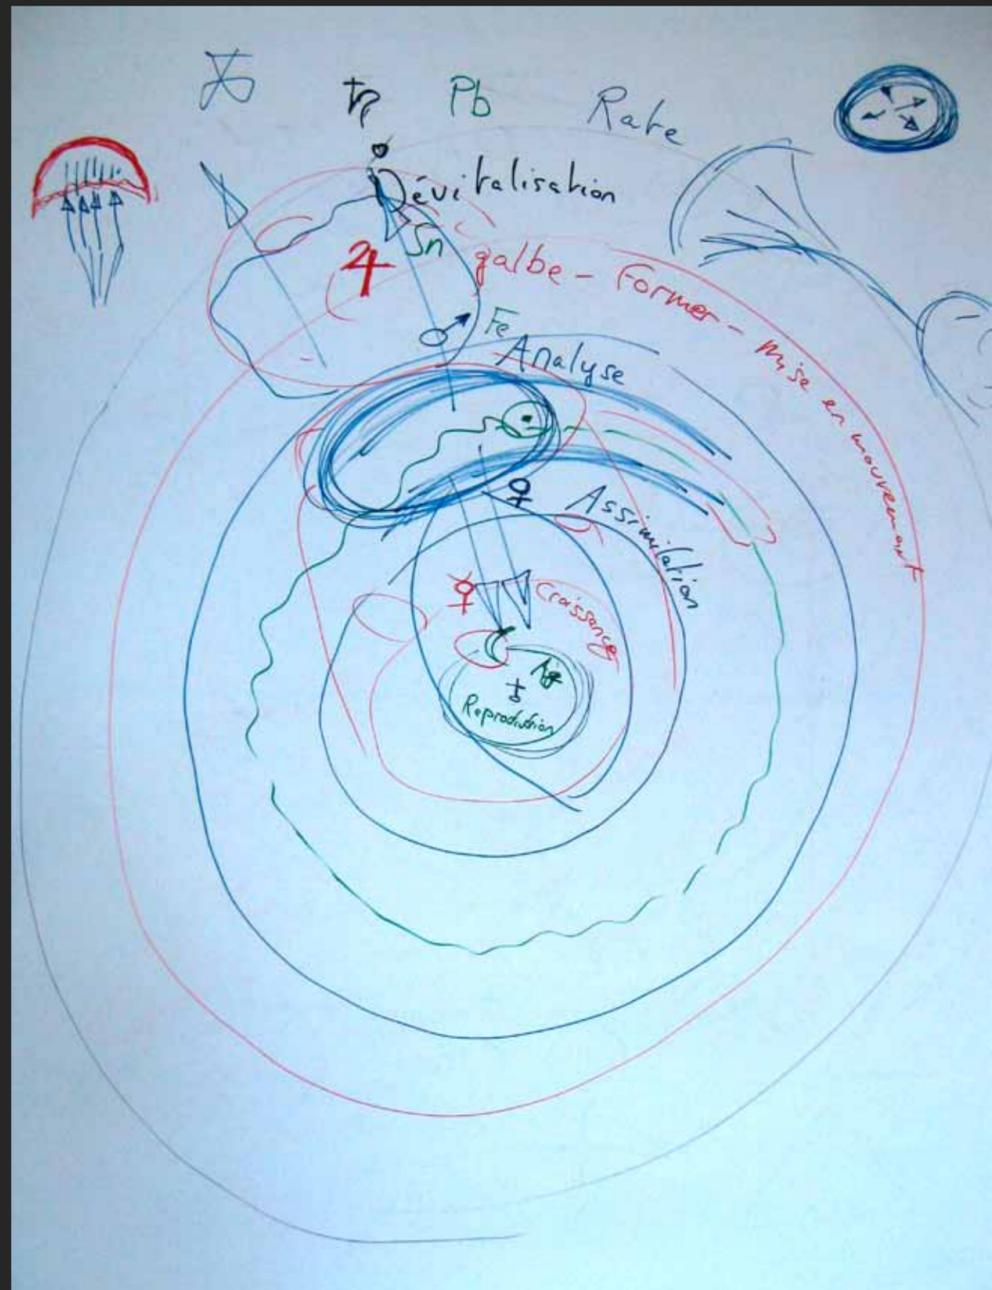 ♄ Pb Rate
Dévitalisation
♃ Sn galbe - Former - Mise en mouvement
♂ Fe
Analyse
♀ Assimilation
☿ Croissance
☾ Ag
Reproduction